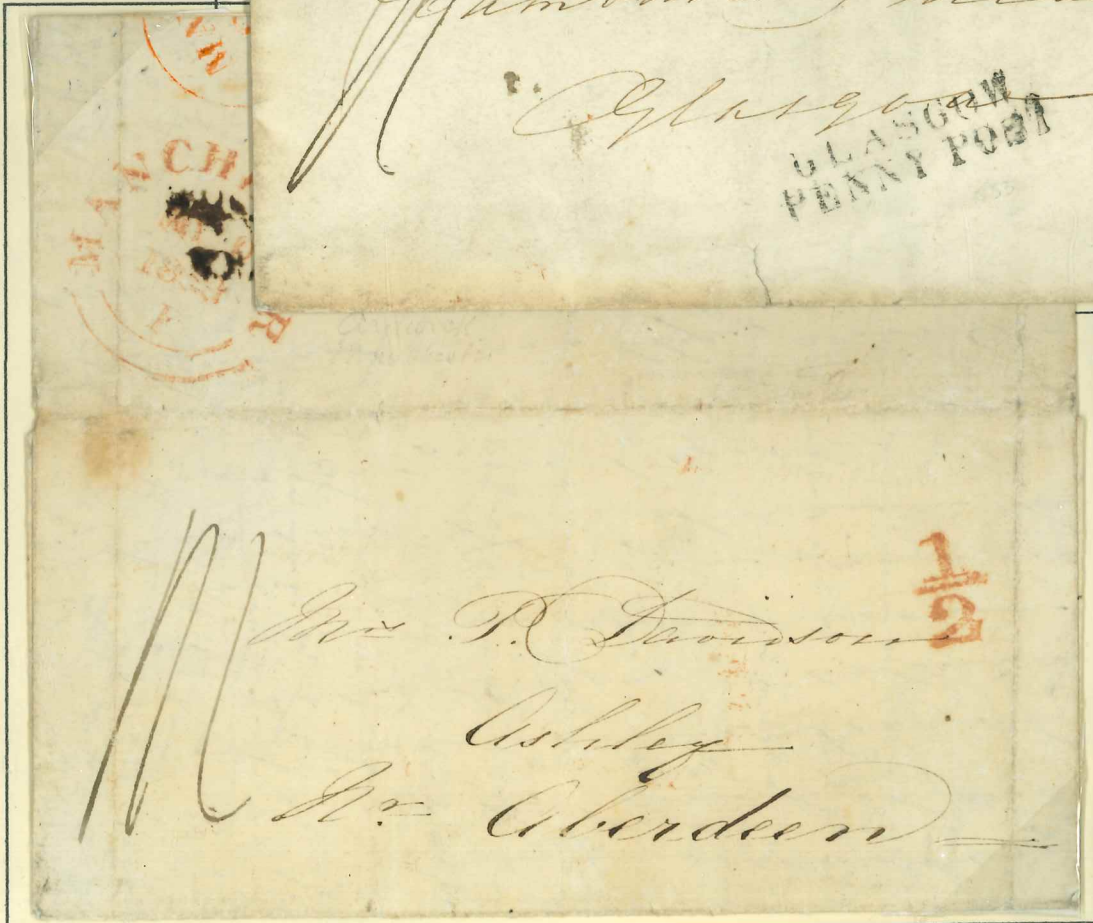 Glasgow
GLASGOW
PENNY POST
MANCH R
1
2
Mrs P. Davidson
Ashley
Nr Aberdeen